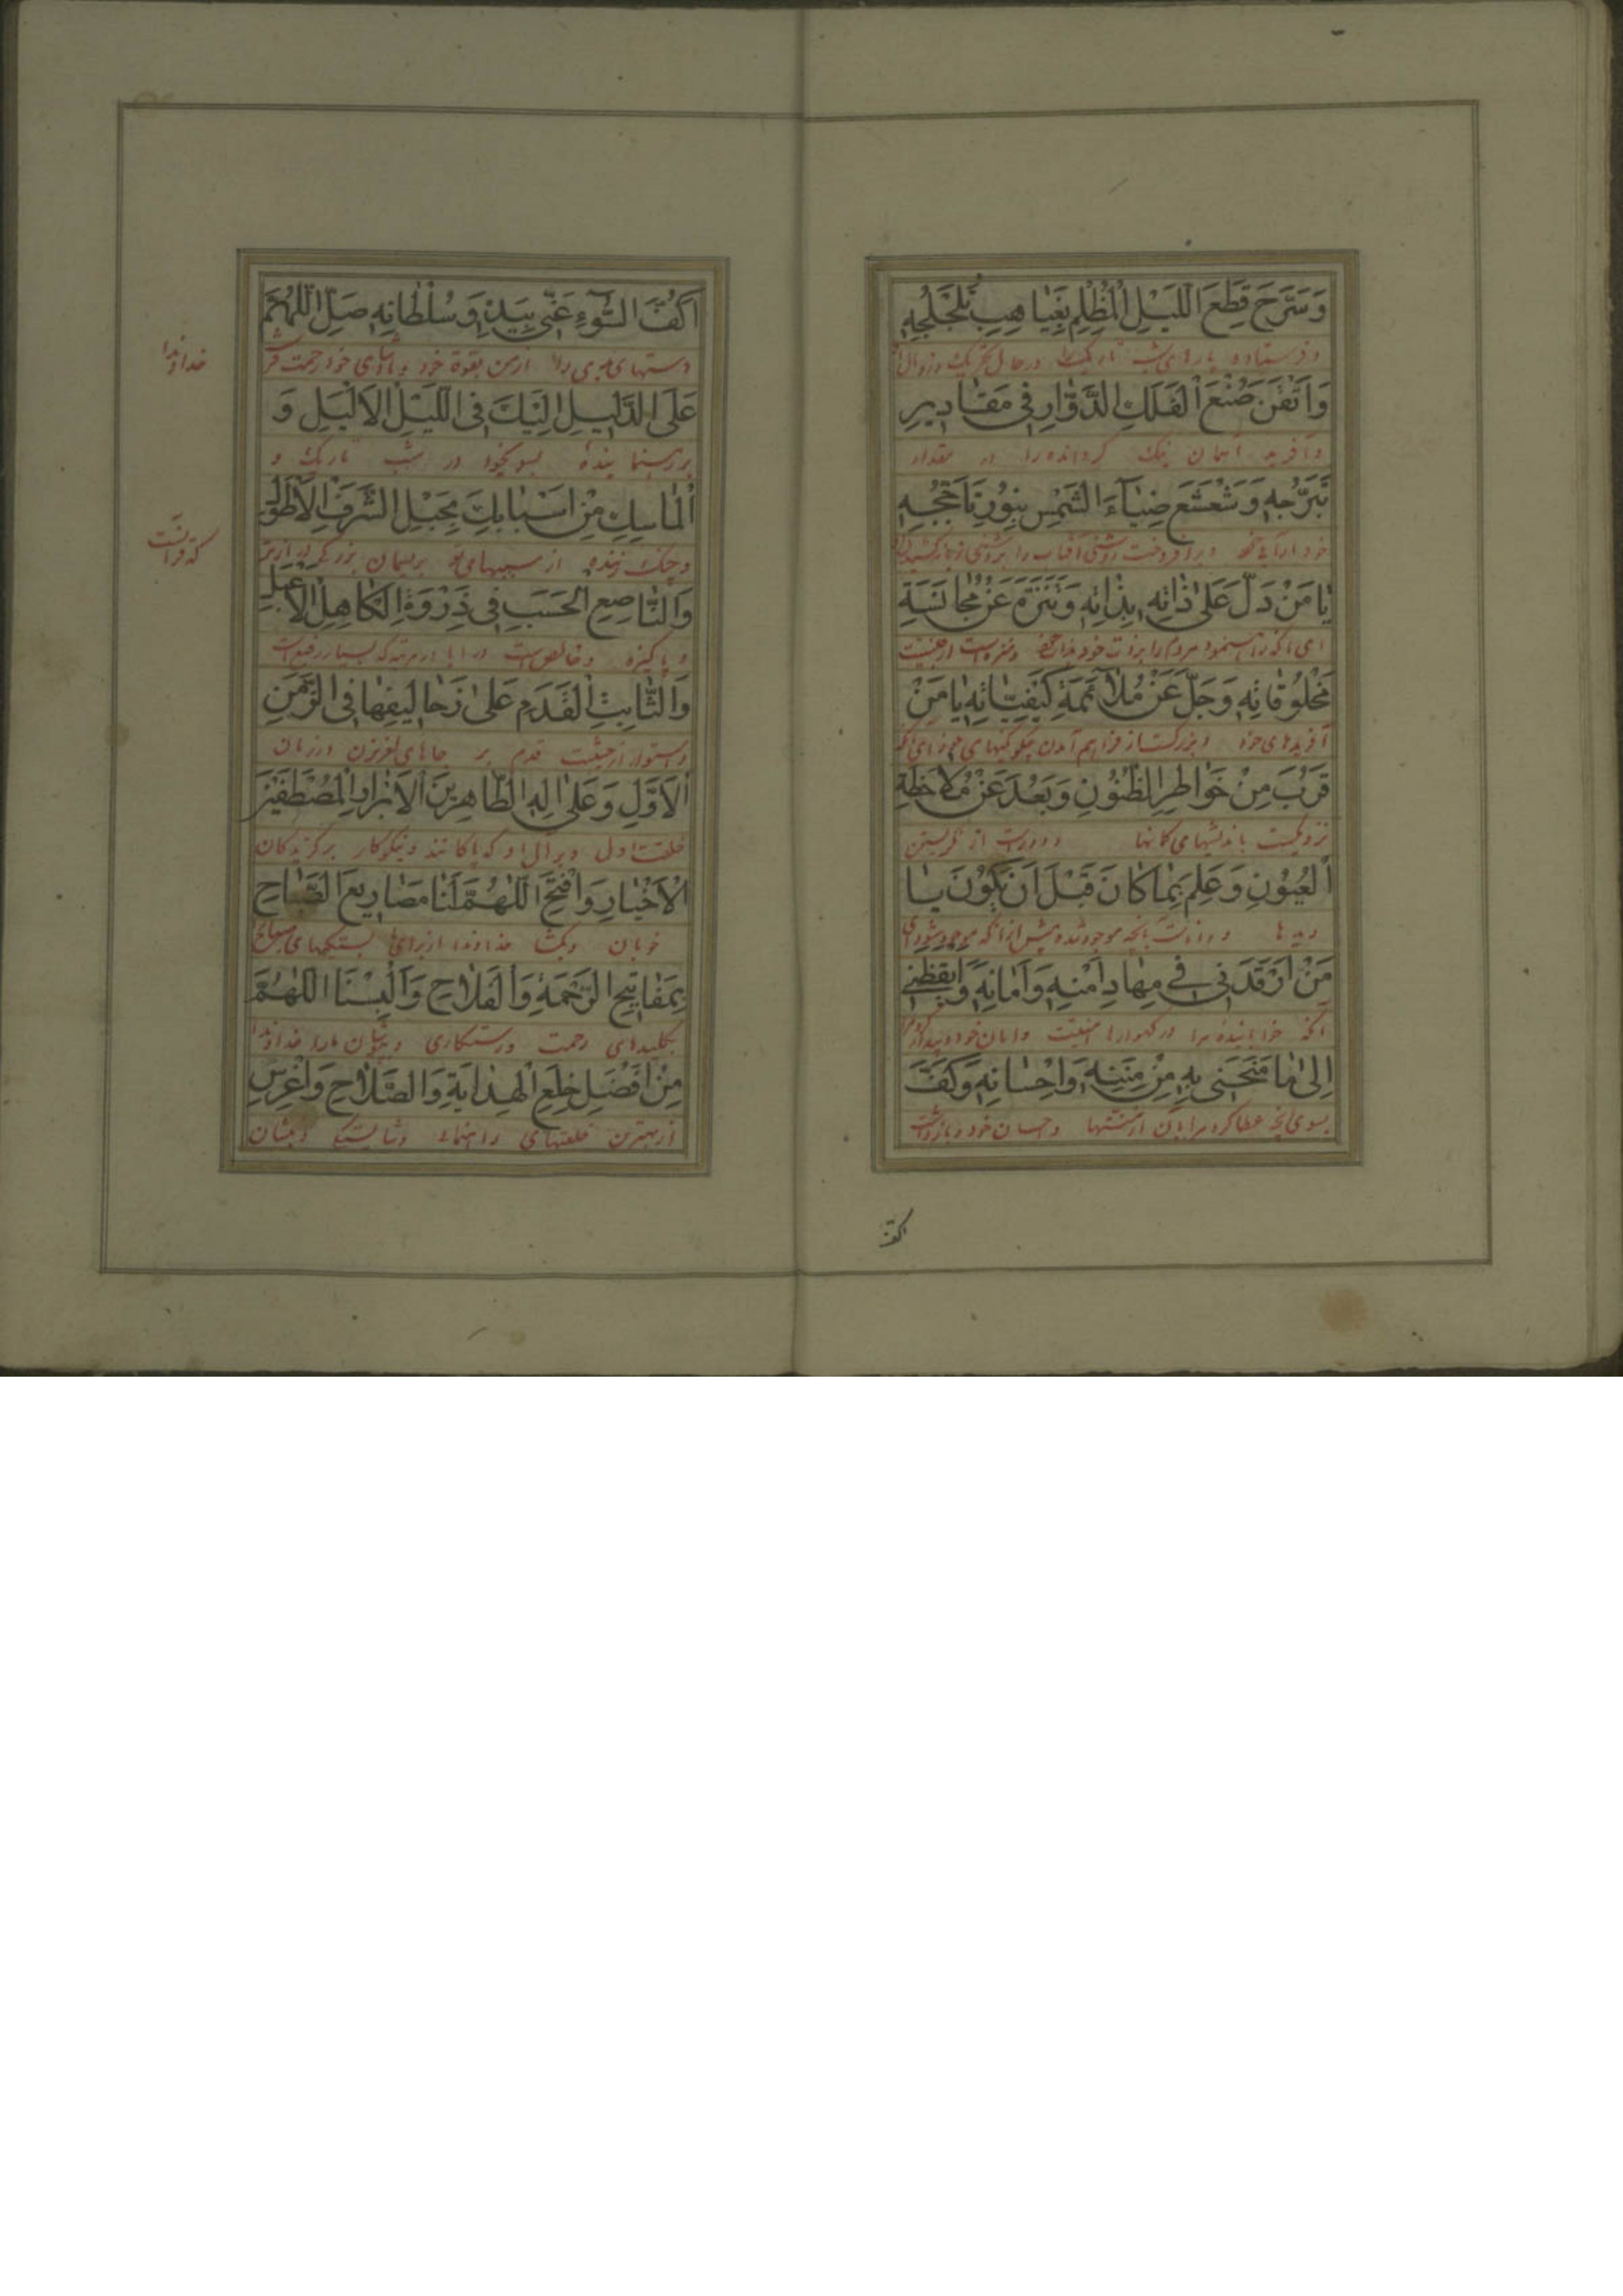 وَسَرَّحَ قِطَعَ اللَّيْلِ الْمُظْلِمِ بِغَيَاهِبِ تَلَجْلُجِهِ
و فرستاده پارهای شب تاریک را در حال تحریک و زوال
وَاَتْقَنَ صُنْعَ الْفَلَكِ الدَّوَّارِ فِي مَقَادِيرِ
و آفرید آسمان نیک گردانده را در مقدار
تَبَرُّجِهِ وَشَعْشَعَ ضِيَآءَ الشَّمْسِ بِنُورِ تَاَجُّجِهِ
و برافروخت روشنی آفتاب را
يَا مَنْ دَلَّ عَلَىٰ ذَاتِهِ بِذَاتِهِ وَتَنَزَّهَ عَنْ مُجَانَسَةِ
ای آنکه مردم را بذات خود و منزه است از جنسیت
مَخْلُوقَاتِهِ وَجَلَّ عَنْ مُلَآئَمَةِ كَيْفِيَّاتِهِ يَا مَنْ
آفریدهای خود و بزرگست از فراهم آمدن چگونگیهای خود ای آنکه
قَرُبَ مِنْ خَوَاطِرِ الظُّنُونِ وَبَعُدَ عَنْ مُلَاحَظَةِ
نزدیکست باندیشهای گمانها و دورست از نگریستن
الْعُيُونِ وَعَلِمَ بِمَا كَانَ قَبْلَ اَنْ يَكُونَ يَا
دیدها و دانست بآنچه موجود شده پیش از آنکه موجود شود ای
مَنْ اَرْقَدَنِي فِي مِهَادِ اَمْنِهِ وَاَمَانِهِ وَاَيْقَظَنِي
آنکه خوابانیده مرا در گهوارهٔ امنیت و امان خود و بیدار کرد
اِلَىٰ مَا مَنَحَنِي بِهِ مِنْ مِنَنِهِ وَاِحْسَانِهِ وَكَفَّ
بسوی آنچه عطا کرده مرا بآن از منتها و احسان خود و بازداشت
اكفّ
اَكُفَّ السُّوٓءِ عَنِّي بِيَدِهِ وَسُلْطَانِهِ صَلِّ اللّٰهُمَّ
دستهای بدی را از من بقوة خود و پادشاهی خود رحمت فرست
خداوندا
عَلَى الدَّلِيلِ اِلَيْكَ فِي اللَّيْلِ الْاَلْيَلِ وَ
بر رهنماینده بسوی خود در شب تاریک و
الْمَاسِكِ مِنْ اَسْبَابِكَ بِحَبْلِ الشَّرَفِ الْاَطْوَلِ
و چنگ زننده از سببهای تو بریسمان بزرگی
وَالنَّاصِعِ الْحَسَبِ فِي ذِرْوَةِ الْكَاهِلِ الْاَعْبَلِ
و پاکیزه و خالص است
وَالثَّابِتِ الْقَدَمِ عَلَىٰ زَحَالِيفِهَا فِي الزَّمَنِ
و استوار از حیثیت قدم بر جاهای لغزیدن در زمان
الْاَوَّلِ وَعَلَىٰ اٰلِهِ الطَّاهِرِينَ الْاَبْرَارِ الْمُصْطَفَيْنَ
خلقت اول و بر آل او که پاکانند و نیکوکار برگزیدگان
الْاَخْيَارِ وَافْتَحِ اللّٰهُمَّ لَنَا مَصَارِيعَ الصَّبَاحِ
خوبان و بگشا خداوندا از برای ما
بِمَفَاتِيحِ الرَّحْمَةِ وَالْفَلَاحِ وَاَلْبِسْنَا اللّٰهُمَّ
بکلیدهای رحمت و رستگاری و بپوشان ما را خداوندا
مِنْ اَفْضَلِ خِلَعِ الْهِدَايَةِ وَالصَّلَاحِ وَاغْرِسِ
از بهترین خلعتهای راهنمائی و شایستگی و بنشان